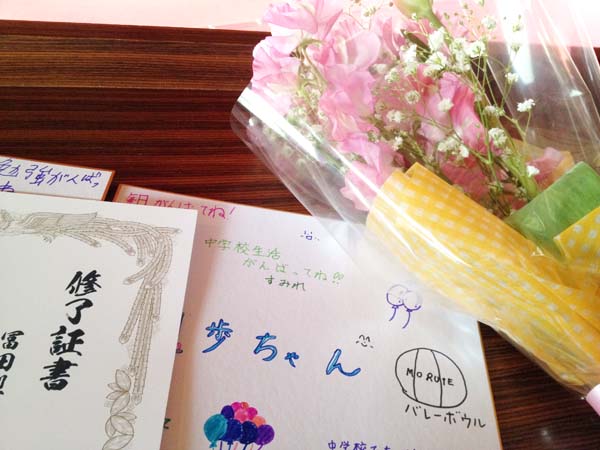 勉強がんばっ
毎日がんばってね!
中学校生活
がんばってね!!
すみれ
歩ちゃん
MORUTE
バレーボウル
修了証書
冨田